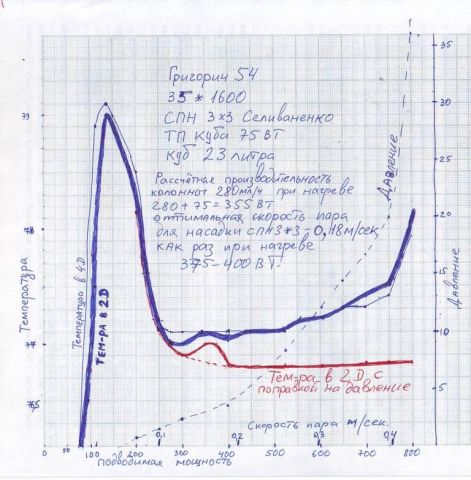 Григорий 54
35 * 1600
СПН 3×3 Селиваненко
ТП Куба 75 ВТ
Куб 23 литра
Рассчётная производительность
колонны 280мл/ч при нагреве
280 + 75 = 355 ВТ
оптимальная скорость пара
для насадки СПН 3*3 - 0,18м/сек,
как раз при нагреве
375-400 ВТ.
Температура
Температура в 4D
Тем-ра в 2D
Давление
Давление
Тем-ра в 2D с
поправкой на давление
Скорость пара м/сек.
79
78
77
76,5
35
30
25
20
15
10
5
0,1
0,2
0,3
0,4
0 50 100 200 300 400 500 600 700 800
мощность